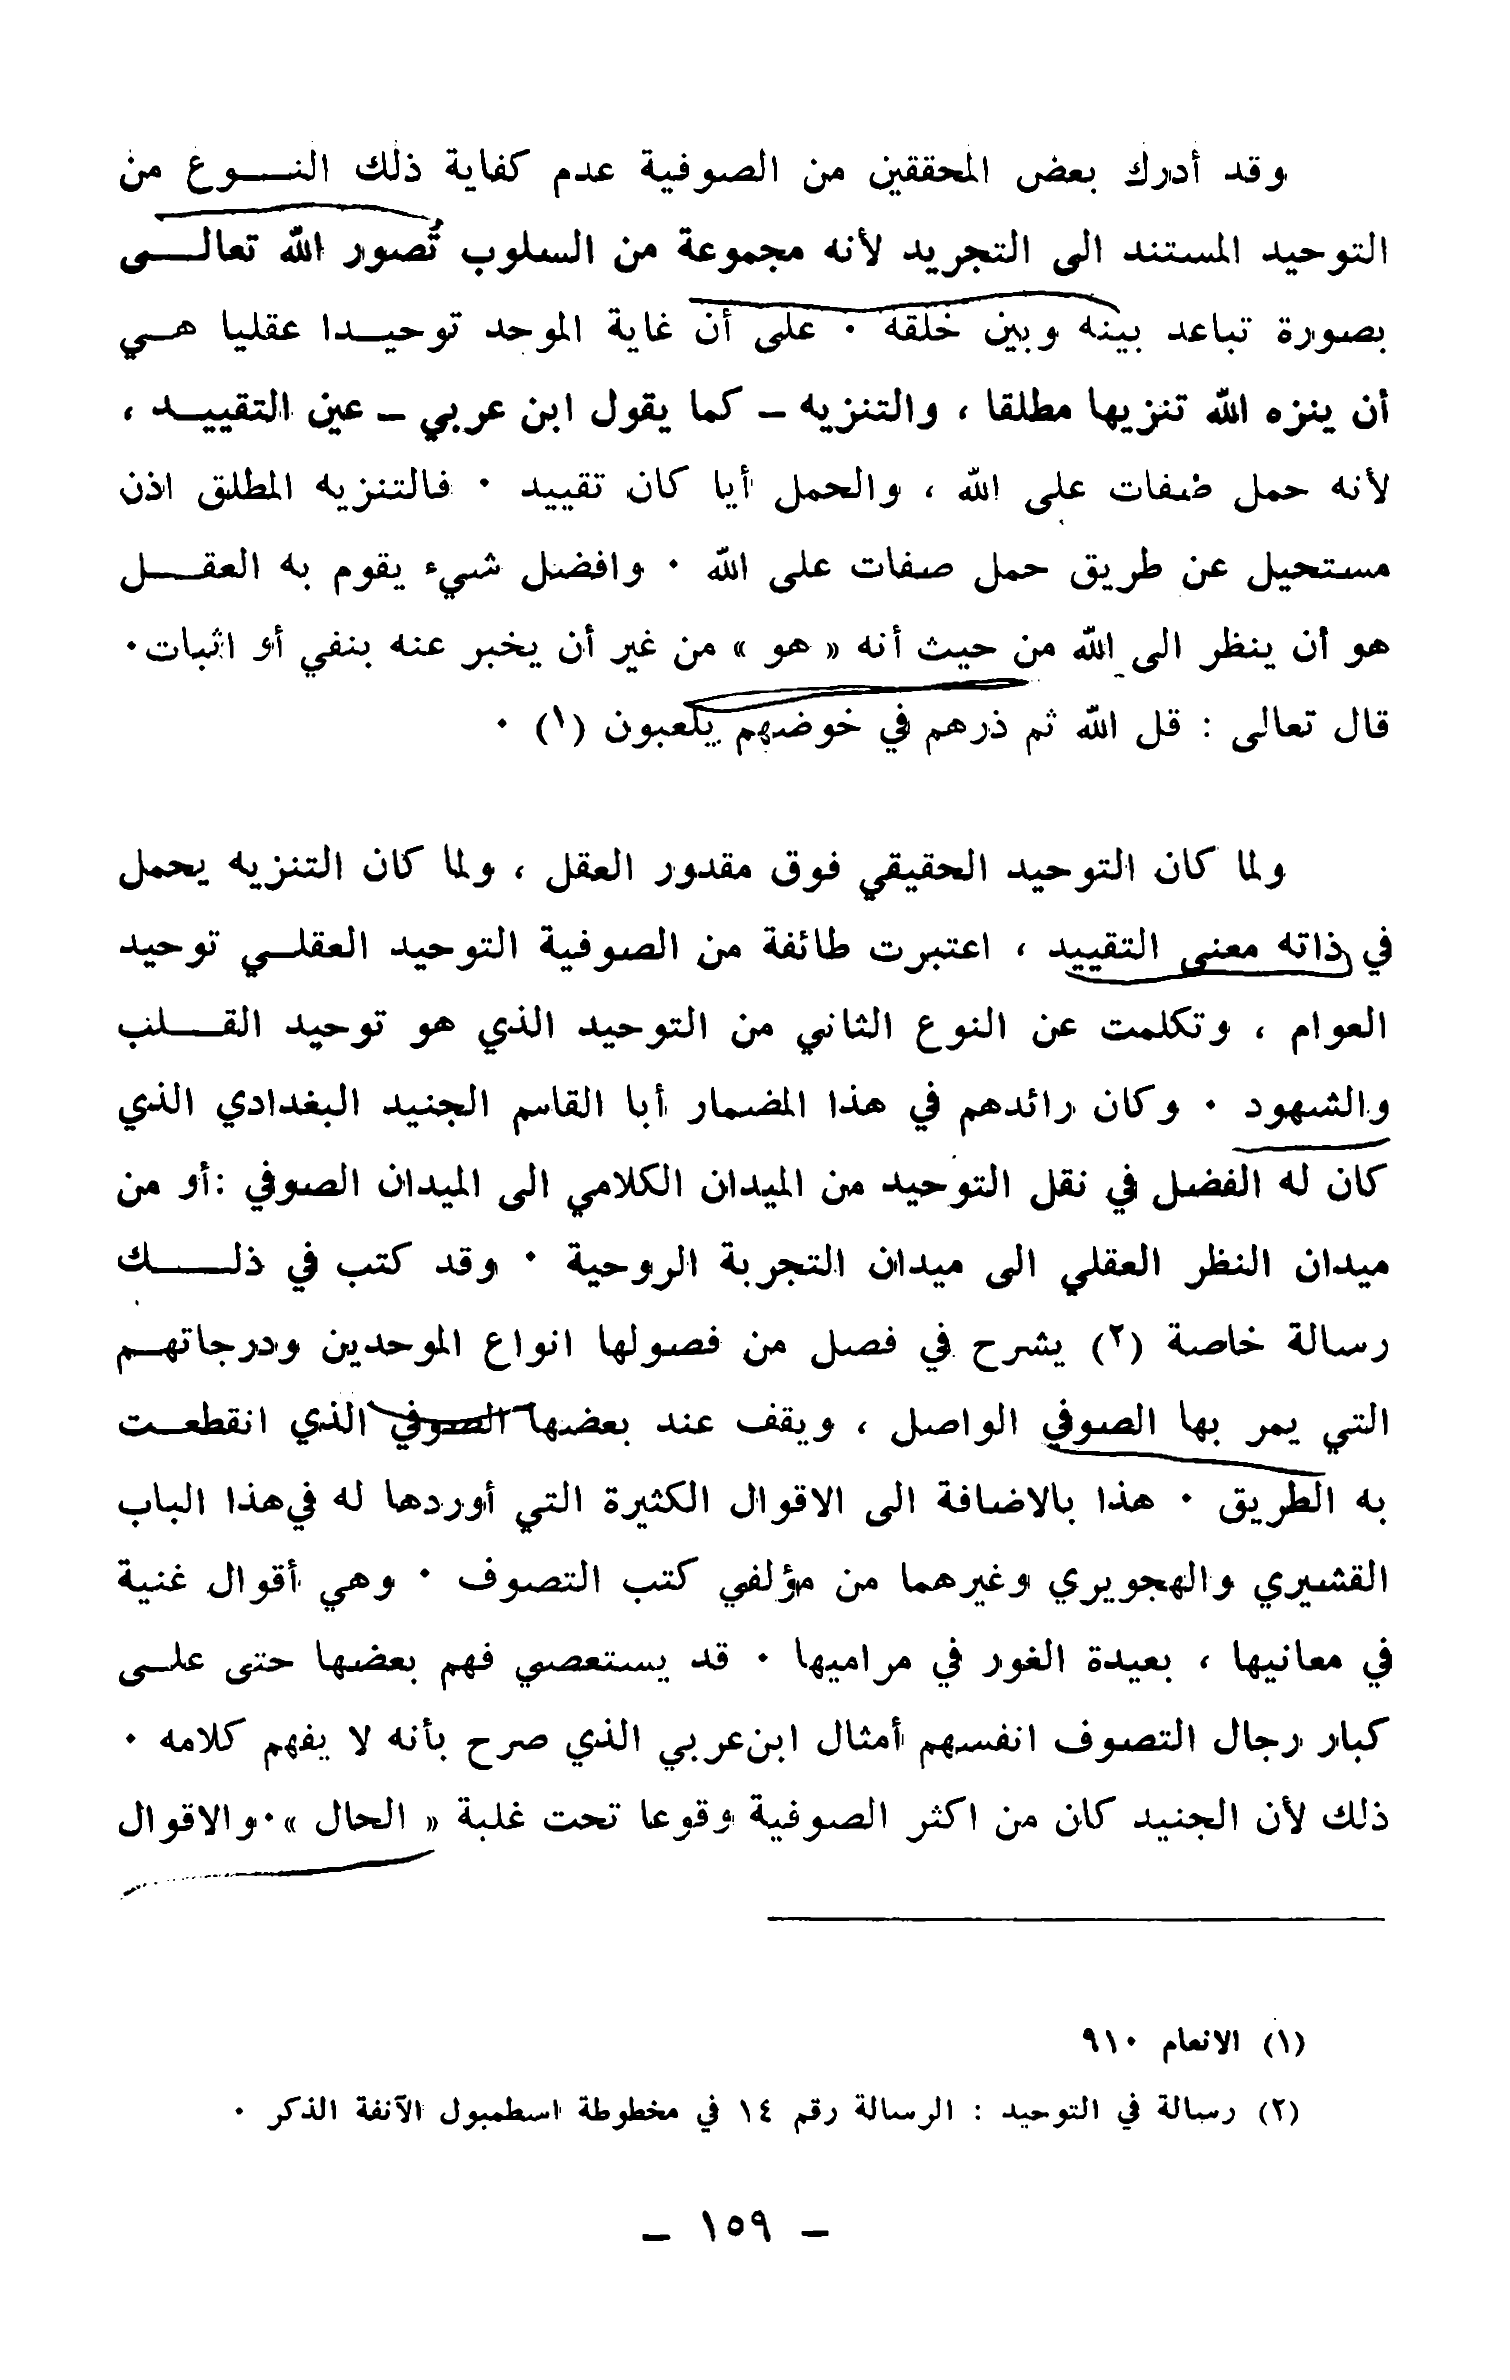 وقد أدرك بعض المحققين من الصوفية عدم كفاية ذلك النوع من
التوحيد المستند الى التجريد لأنه مجموعة من السلوب تُصور الله تعالى
بصورة تباعد بينه وبين خلقه . على أن غاية الموحد توحيدا عقليا هي
أن ينزه الله تنزيها مطلقا ، والتنزيه – كما يقول ابن عربي – عين التقييد ،
لأنه حمل صفات على الله ، والحمل أيا كان تقييد . فالتنزيه المطلق اذن
مستحيل عن طريق حمل صفات على الله . وافضل شيء يقوم به العقل
هو أن ينظر الى الله من حيث أنه « هو » من غير أن يخبر عنه بنفي أو اثبات.
قال تعالى : قل الله ثم ذرهم في خوضهم يلعبون (١) .
ولما كان التوحيد الحقيقي فوق مقدور العقل ، ولما كان التنزيه يحمل
في ذاته معنى التقييد ، اعتبرت طائفة من الصوفية التوحيد العقلي توحيد
العوام ، وتكلمت عن النوع الثاني من التوحيد الذي هو توحيد القلب
والشهود . وكان رائدهم في هذا المضمار أبا القاسم الجنيد البغدادي الذي
كان له الفضل في نقل التوحيد من الميدان الكلامي الى الميدان الصوفي : أو من
ميدان النظر العقلي الى ميدان التجربة الروحية . وقد كتب في ذلك
رسالة خاصة (٢) يشرح في فصل من فصولها انواع الموحدين ودرجاتهم
التي يمر بها الصوفي الواصل ، ويقف عند بعضها الصوفي الذي انقطعت
به الطريق . هذا بالاضافة الى الاقوال الكثيرة التي أوردها له في هذا الباب
القشيري والهجويري وغيرهما من مؤلفي كتب التصوف . وهي أقوال غنية
في معانيها ، بعيدة الغور في مراميها . قد يستعصي فهم بعضها حتى على
كبار رجال التصوف انفسهم أمثال ابن عربي الذي صرح بأنه لا يفهم كلامه .
ذلك لأن الجنيد كان من اكثر الصوفية وقوعا تحت غلبة « الحال » . والاقوال
(١) الانعام ٩١٠
(٢) رسالة في التوحيد : الرسالة رقم ١٤ في مخطوطة اسطمبول الآنفة الذكر .
– ١٥٩ –